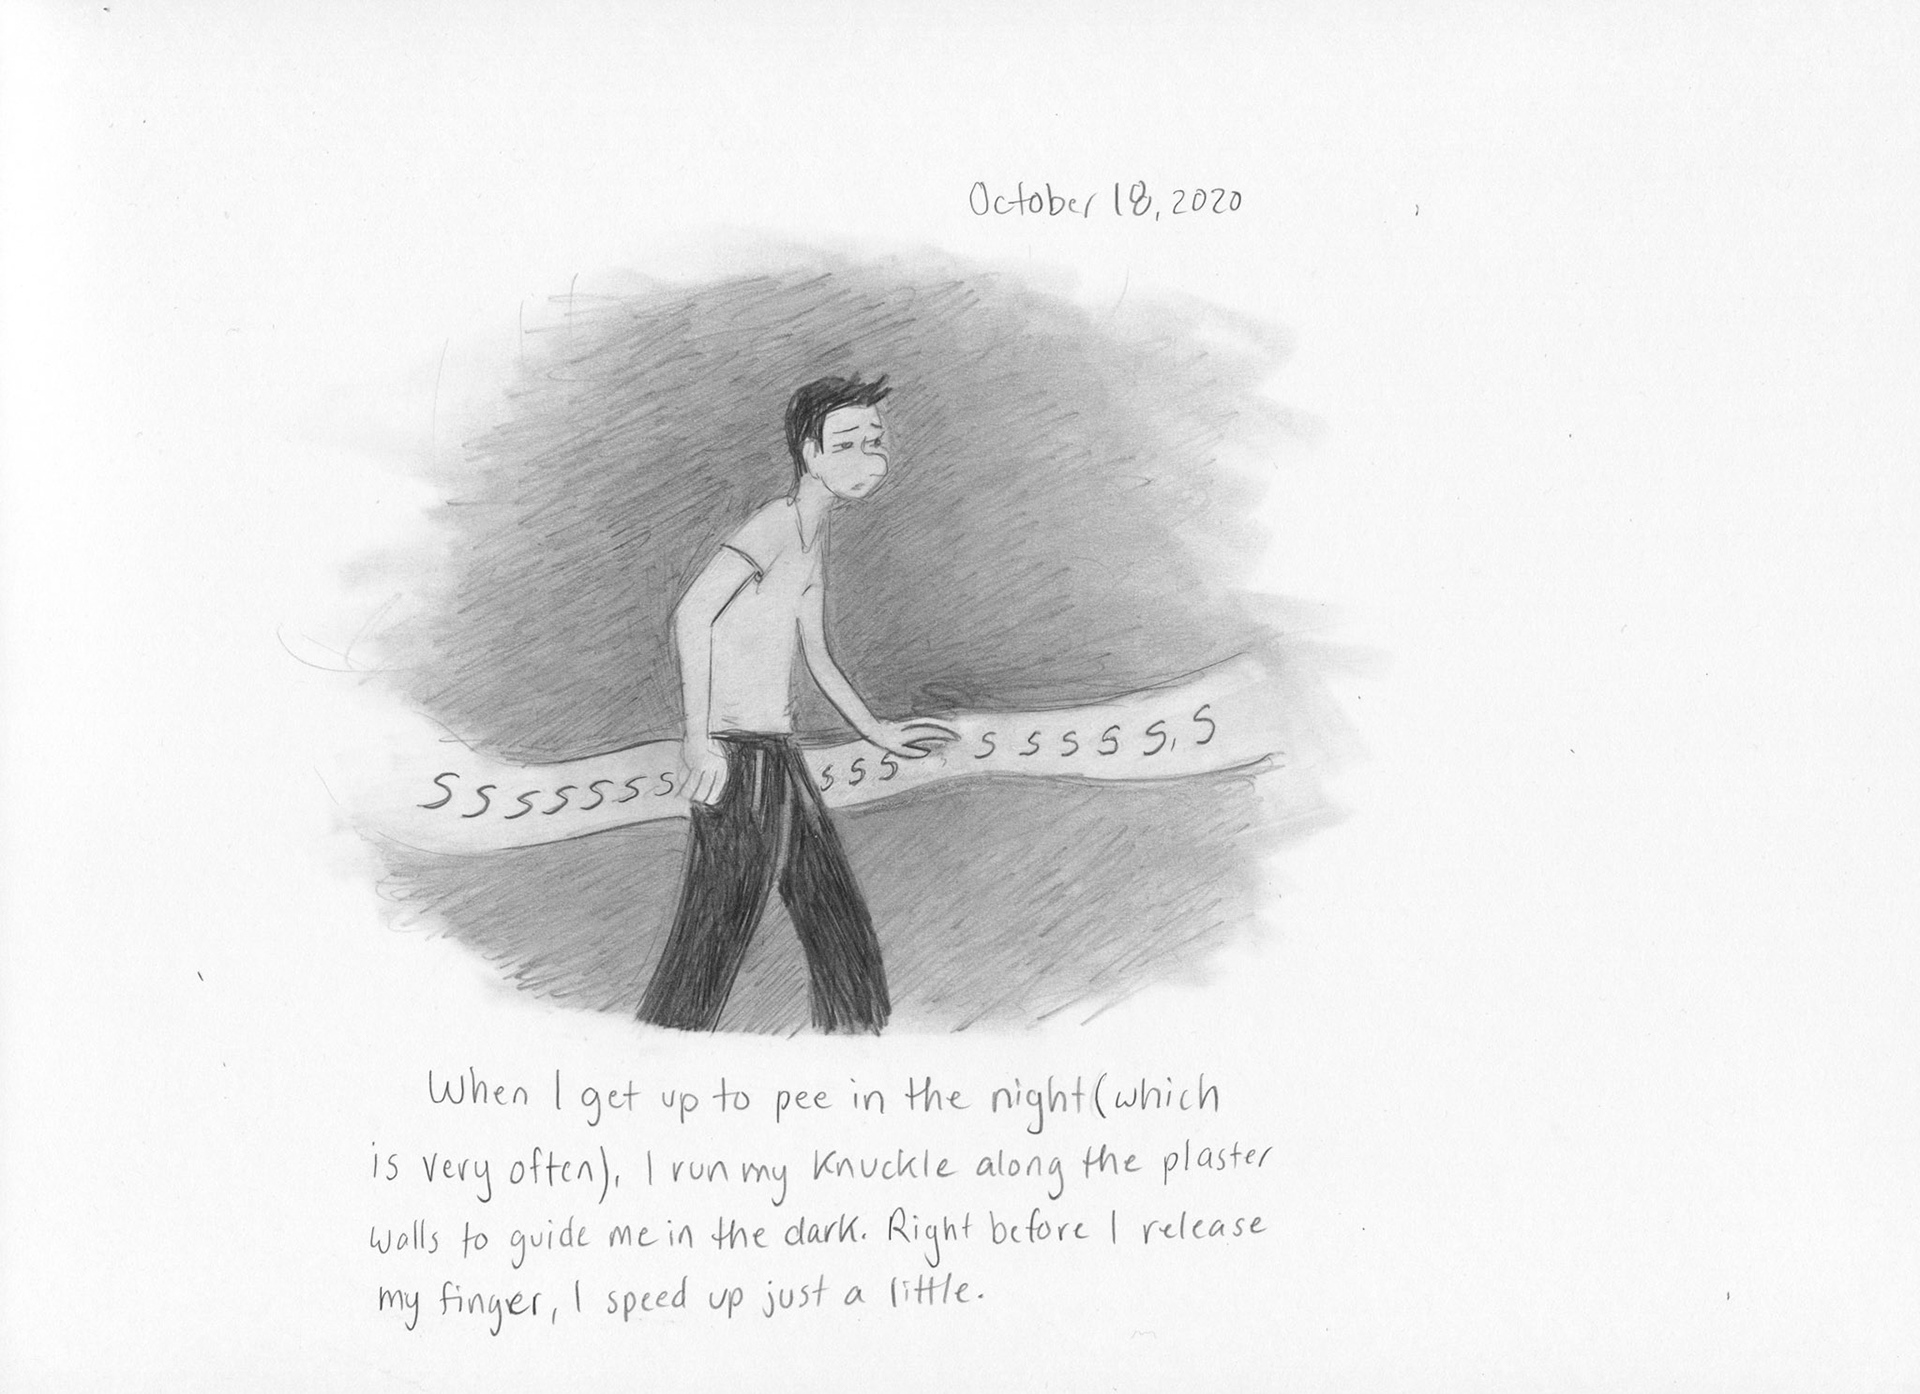 October 18, 2020
SSSSSSS SSS SSSSS,S
When I get up to pee in the night (which
is very often), I run my knuckle along the plaster
walls to guide me in the dark. Right before I release
my finger, I speed up just a little.